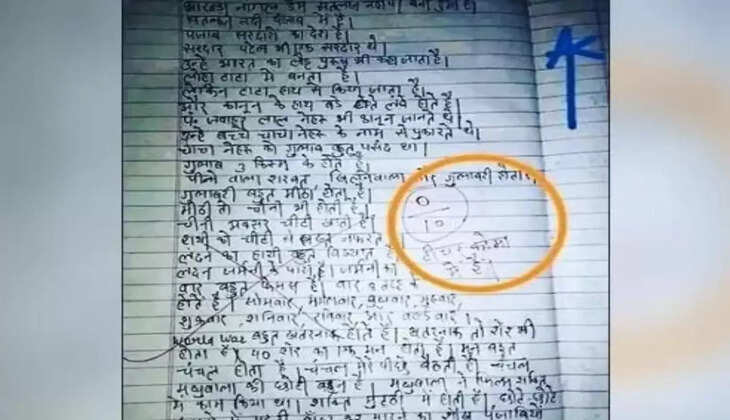 भाखड़ा नांगल डेम सतलज नदी पर बना हुआ है।
सतलज नदी पंजाब में है।
पंजाब सरदारो का देश है।
सरदार पटेल भी एक सरदार थे।
उन्हे भारत का लोह पुरुष भी कहा जाता है।
लोहा टाटा में बनता है।
लेकिन टाटा हाथ से किया जाता है।
और कानून के हाथ बडे होते लंबे होते है।
पं. जवाहर लाल नेहरू भी कानून जानते थे।
उन्हे बच्चे चाचा नेहरू के नाम से पुकारते थे।
चाचा नेहरू को गुलाब बहुत पसंद था।
गुलाब 3 किस्म के होते है।
पीने वाला शरबत और गुलाबरी होता
गुलाबरी बहुत मीठा होता है।
मीठी तो चीनी भी होती है।
चीनी अक्सर चींटी खाती है।
हाथी को चींटी से बहुत नफरत है।
लंदन का हाथी बहुत विख्यात है।
लंदन जर्मनी के पास है। जर्मनी का
वार बहुत फेमस है। वार 8 तरह के
होते है। सोमवार, मंगलवार, बुधवार, गुरूवार,
शुक्रवार, शनिवार, रविवार और वर्ल्डवार।
World war बहुत खतरनाक होते है। खतरनाक तो शेर भी
होता है। 40 शेर का एक मन होता है। मन बहुत
चंचल होता है। चंचल मेरे पीछे बैठती है। चंचल
मधुबाला की छोटी बहन है। मधुबाला ने फिल्म शक्ति
में काम किया था। शक्ति मुट्ठी में होती है। छोटे छोटे
0
10
टीचर कोमा
में है।
AK